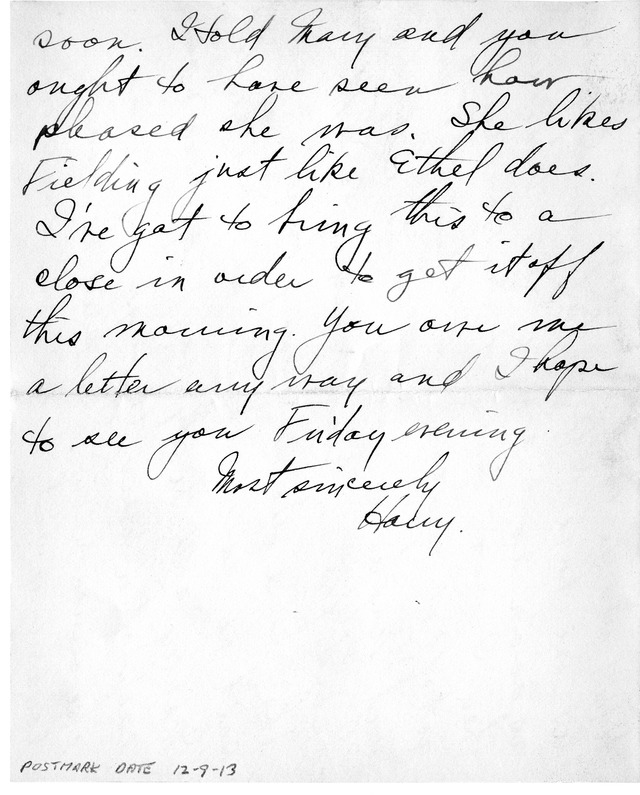 soon. I told Mary and you
ought to have seen how
pleased she was. She likes
Fielding just like Ethel does.
I've got to bring this to a
close in order to get it off
this morning. You owe me
a letter any way and I hope
to see you Friday evening.
Most sincerely
Harry.
POSTMARK DATE 12-9-13